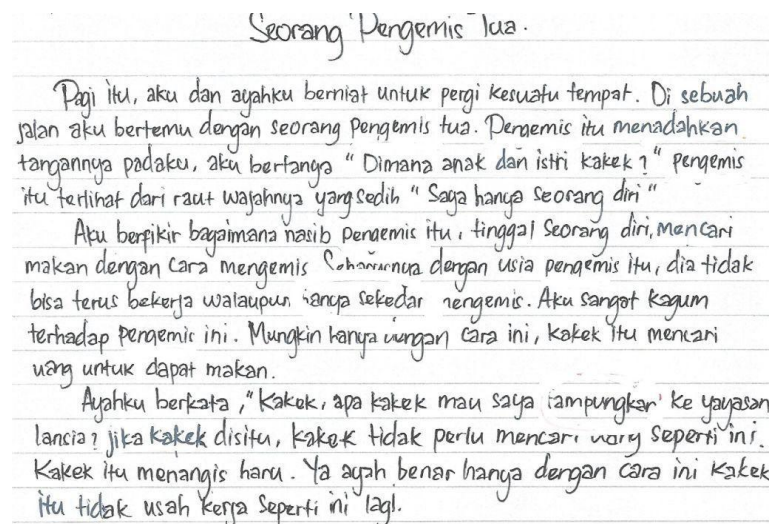 Seorang Pengemis Tua.
Pagi itu, aku dan ayahku berniat untuk pergi kesuatu tempat. Di sebuah
jalan aku bertemu dengan seorang pengemis tua. Pengemis itu menadahkan
tangannya padaku, aku bertanya " Dimana anak dan istri kakek ? " pengemis
itu terlihat dari raut wajahnya yang sedih " Saya hanya seorang diri "
Aku berpikir bagaimana nasib pengemis itu, tinggal seorang diri, mencari
makan dengan cara mengemis Seharusnya dengan usia pengemis itu, dia tidak
bisa terus bekerja walaupun hanya sekedar mengemis. Aku sangat kagum
terhadap pengemis ini. Mungkin hanya dengan cara ini, kakek itu mencari
uang untuk dapat makan.
Ayahku berkata, " Kakek, apa kakek mau saya tampungkan ke yayasan
lansia ? jika kakek disitu, kakek tidak perlu mencari uang seperti ini.
Kakek itu menangis haru. Ya ayah benar hanya dengan cara ini kakek
itu tidak usah kerja seperti ini lagi.